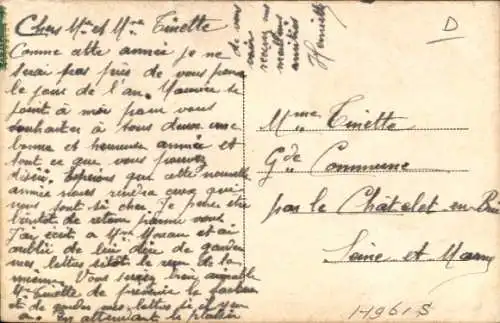 Chers Mr et Mme Tinette
Comme cette année je ne
serai pas près de vous pour
le jour de l'an. Maurice se
joint à moi pour vous
souhaiter à tous deux une
bonne et heureuse année et
tout ce que vous pouvez
désirer. Espérons que cette nouvelle
année nous rendra ceux qui
nous sont si cher. Je pense être
bientôt de retour parmi vous
J'ai écrit à Mme Moreau et ai
oublié de lui dire de garder
mes lettres sitôt le reçu de la
mienne. Vous seriez bien aimable
Mme Tinette de prévenir le facteur
et de garder mes lettres si il y en
a. En attendant le plaisir
de vous
voir
recevez nos
meilleures
amitiés
Henriette
D
Mme Tinette
Gde Commune
par le Châtelet-en-Brie
Seine et Marne
1-1961 S